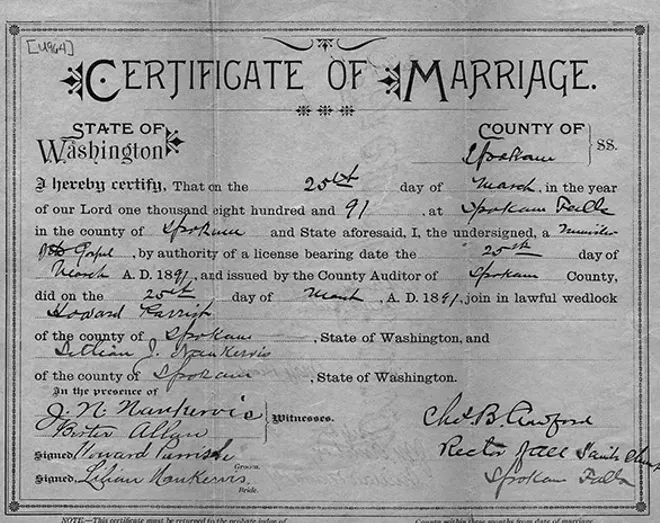 [U964]
CERTIFICATE OF MARRIAGE.
STATE OF Washington
COUNTY OF Spokane } SS.
I hereby certify, That on the 25th day of March, in the year
of our Lord one thousand eight hundred and 91, at Spokane Falls
in the county of Spokane and State aforesaid, I, the undersigned, a Minister
of the Gospel, by authority of a license bearing date the 25th day of
March A. D. 1891, and issued by the County Auditor of Spokane County,
did on the 25th day of March, A. D. 1891, join in lawful wedlock
Howard Parrish
of the county of Spokane, State of Washington, and
Lillian J. Nankervis
of the county of Spokane, State of Washington.
In the presence of
J. N. Nankervis
Allan
} Witnesses.
Signed, Howard Parrish
Groom.
Signed, Lilian Nankervis.
Bride.
Chas. B. Crawford
Rector All Saints
Spokane Falls
NOTE.—This certificate must be returned to the probate judge of County within three months from date of marriage